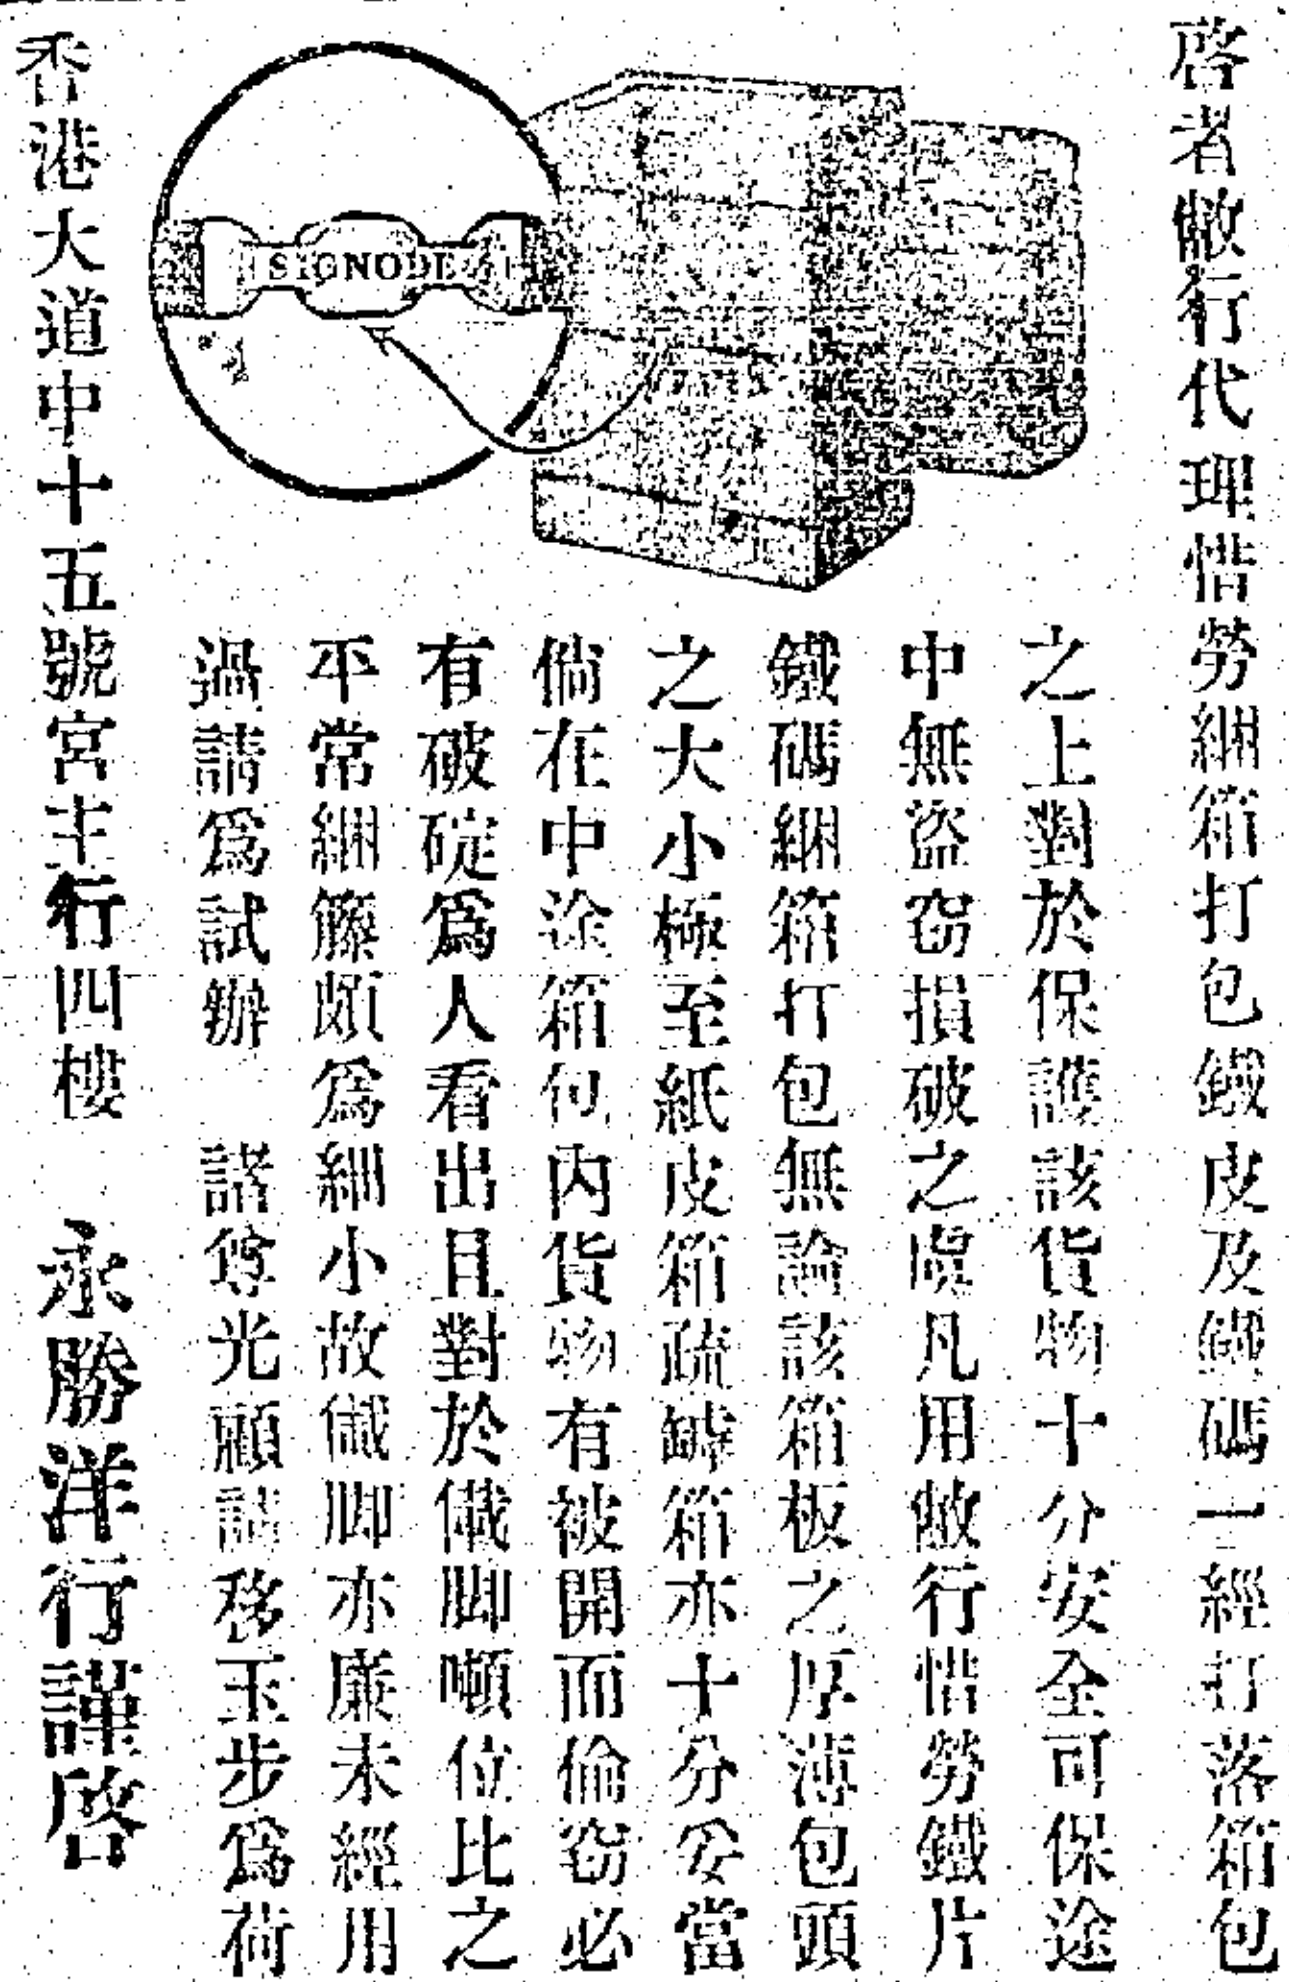 啓者敝行代理惜勞綑箱打包鐵皮及鐵碼一經打落箱包
之上對於保護該貨物十分安全可保途
中無盜窃損破之虞凡用敝行惜勞鐵片
鐵碼綑箱打包無論該箱板之厚薄包頭
之大小極至紙皮箱疏罅箱亦十分妥當
倘在中途箱包內貨物有被開而偷窃必
有破碇爲人看出且對於儎脚噸位比之
平常綑籐頗爲細小故儎脚亦廉未經用
過請爲試辦 諸尊光顧請移玉步爲荷
SIGNODE
香港大道中十五號宮主行四樓 永勝洋行謹啓